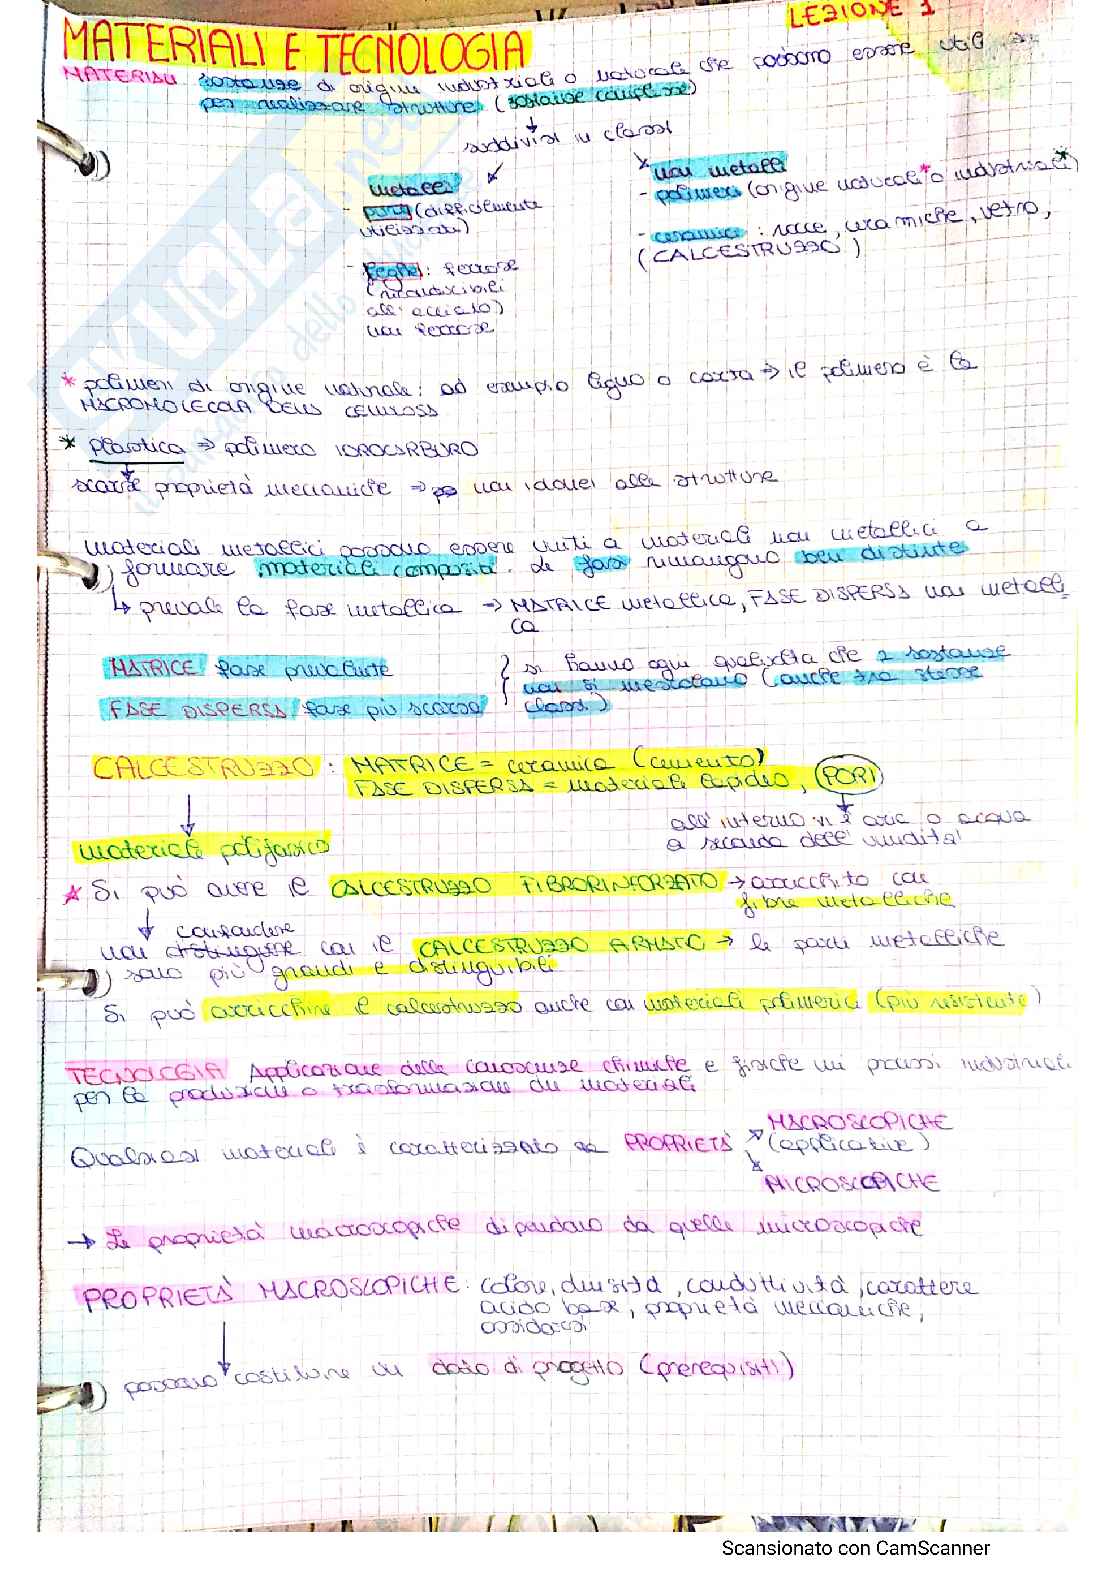 LEZIONE 1
MATERIALI E TECNOLOGIA
MATERIALI sostanze di origine industriali o naturali che possono essere utili
per realizzare strutture (sostanze complesse)
suddivisi in classi
metalli
- puri (difficilmente
utilizzati)
- leghe: ferrose
(riconducibili
all'acciaio)
non ferrose
non metalli
- polimeri (origine naturali* o industriali*)
- ceramici: rocce, ceramiche, vetro,
(CALCESTRUZZO)
* polimeri di origine naturale: ad esempio legno o carta → il polimero è la
MACROMOLECOLA DELLA CELLULOSA
* Plastica ⇒ polimero IDROCARBURO
scarse proprietà meccaniche ⇒ non idonei alle strutture
materiali metallici possono essere uniti a materiali non metallici a
formare materiali compositi. Le fasi rimangono ben distinte
↳ prevale la fase metallica → MATRICE metallica, FASE DISPERSA non metalli
ca
MATRICE fase prevalente
FASE DISPERSA fase più scarsa
si hanno ogni qualvolta che 2 sostanze
non si mescolano (anche tra stesse
classi)
CALCESTRUZZO: MATRICE = ceramica (cemento)
FASE DISPERSA = materiali lapideo, PORI
all'interno vi è aria o acqua
a seconda dell'umidità
materiale polifasico
* Si può avere il CALCESTRUZZO FIBRORINFORZATO → arricchito con
fibre metalliche
confondere
non distinguere con il CALCESTRUZZO ARMATO → le parti metalliche
sono più grandi e distinguibili
Si può arricchire il calcestruzzo anche con materiali polimerici (più resistente)
TECNOLOGIA Applicazione delle conoscenze chimiche e fisiche nei processi industriali
per la produzione o trasformazione dei materiali
Qualsiasi materiali è caratterizzato da PROPRIETÀ
MACROSCOPICHE
(applicative)
MICROSCOPICHE
→ Le proprietà macroscopiche dipendono da quelle microscopiche
PROPRIETÀ MACROSCOPICHE: colore, densità, conduttività, carattere
acido base, proprietà meccaniche,
ossidarsi
possono costituire un dato di progetto (prerequisiti)
Scansionato con CamScanner